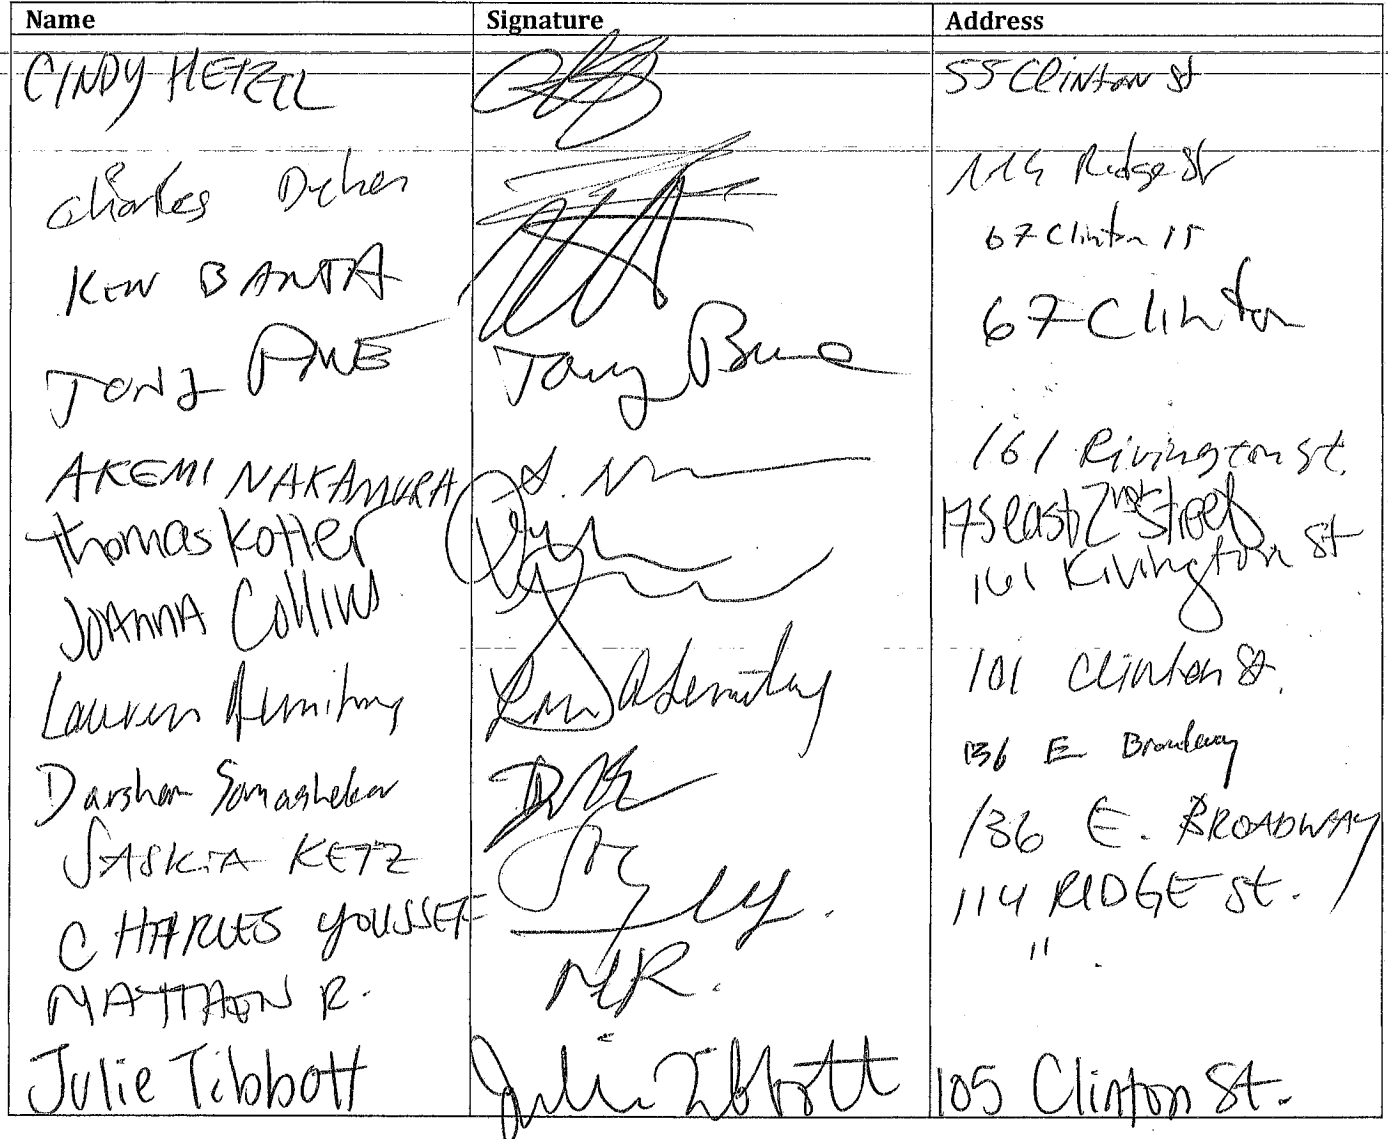 Name Signature Address
CINDY HETZEL 55 Clinton St
Charles 114 Ridge St
KEN BANTA 67 Clinton
TONY Tony 67 Clinton
AKEMI NAKAMURA A. N 161 Rivington St.
Thomas Kotler 175 east 2nd Street
JOANNA Collins 161 Rivington St
Lauren 101 Clinton St.
Darshan Somashekar 136 E Broadway
SASKIA KETZ 136 E. BROADWAY
CHARLES YOUSSEF 114 RIDGE St.
MATTHEW R. MR. " .
Julie Tibbott Julie Tibbott 105 Clinton St.